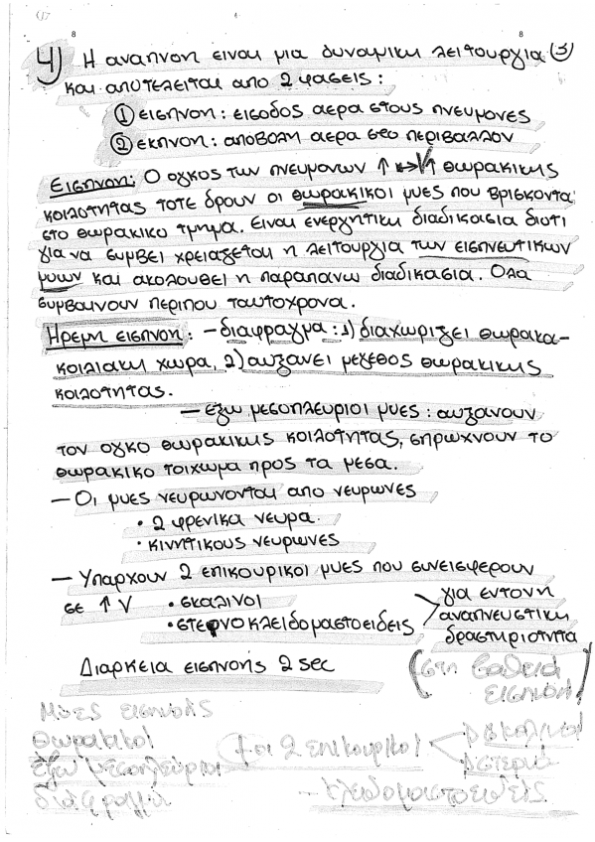 8 8
4) Η αναπνοη ειναι μια δυναμικη λειτουργια (3)
και αποτελειται απο 2 φασεις:
① εισπνοη: εισοδος αερα στους πνευμονες
② εκπνοη: αποβολη αερα στο περιβαλλον
Εισπνοη: Ο ογκος των πνευμονων ↑ ↔ V↑ θωρακικης
κοιλοτητας τοτε δρουν οι θωρακικοι μυες που βρισκοντα
στο θωρακικο τμημα. Ειναι ενεργητικη διαδικασια διοτι
για να συμβει χρειαζεται η λειτουργια των εισπνευτικων
μυων και ακολουθει η παραπανω διαδικασια. Ολα
συμβαινουν περιπου ταυτοχρονα.
Ηρεμη εισπνοη: – διαφραγμα: 1) διαχωριζει θωρακα-
κοιλιακη χωρα, 2) αυξανει μεγεθος θωρακικης
κοιλοτητας.
– εξω μεσοπλευριοι μυες: αυξανουν
τον ογκο θωρακικης κοιλοτητας, σπρωχνουν το
θωρακικο τοιχωμα προς τα μεσα.
– Οι μυες νευρωνονται απο νευρωνες
· 2 φρενικα νευρα.
· κινητικους νευρωνες
– Υπαρχουν 2 επικουρικοι μυες που συνεισφερουν
σε ↑ V · σκαλινοι
· στερνοκλειδομαστοειδεις
για εντονη
αναπνευστικη
δραστηριοτητα
Διαρκεια εισπνοης 2 sec
(στη βαθεια
εισπνοη)
Μυες εισπνοης
θωρακικοι
εξω μεσοπλευριοι
διαφραγμα
+ οι 2 επικουρικοι
κλειδομαστοειδεις